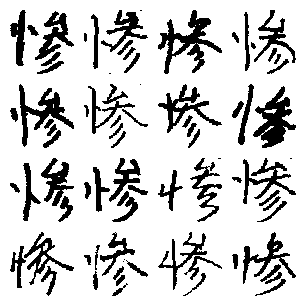 惨惨惨惨
惨惨惨惨
惨惨惨惨
惨惨惨惨